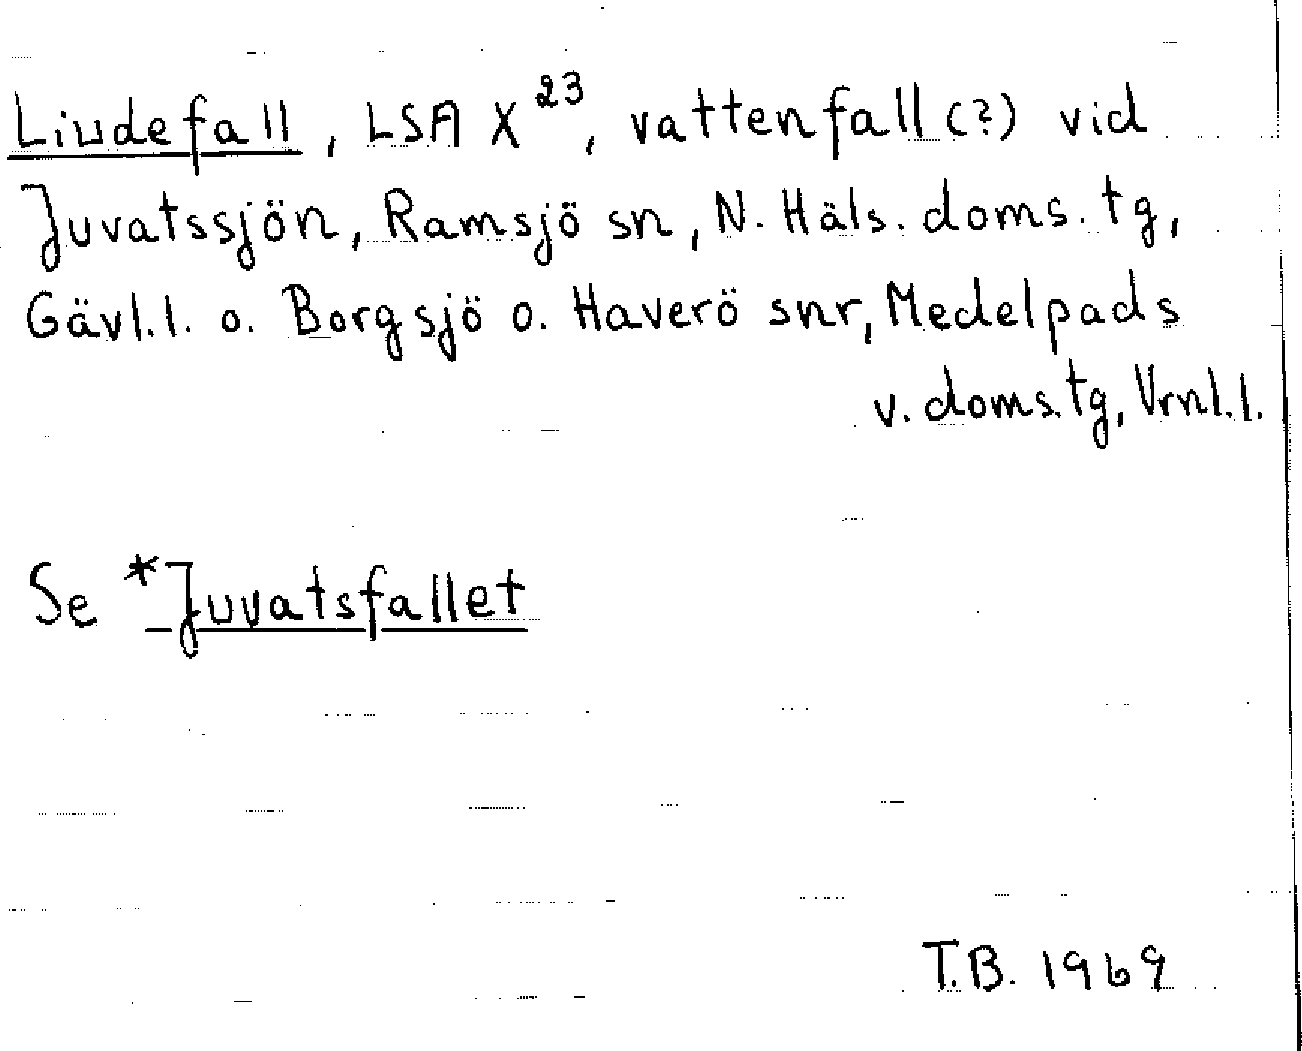 Liudefall, LSA X²³, vattenfall (?) vid
Juvatssjön, Ramsjö sn, N. Häls. doms. tg,
Gävl.l. o. Borgsjö o. Haverö snr, Medelpads
v. doms.tg, Vrnl.l.
Se *Juvatsfallet
T.B. 1969